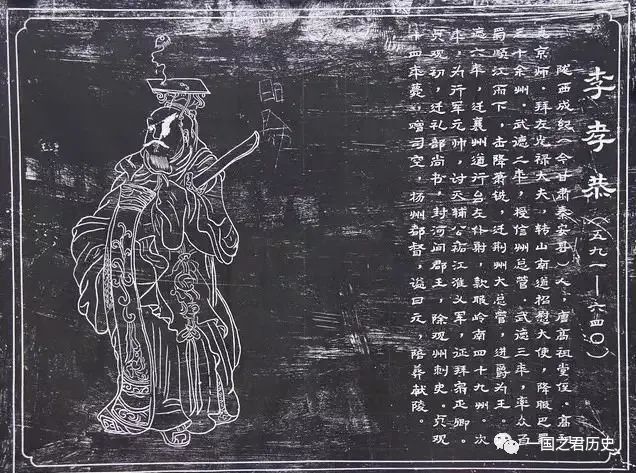 李孝恭（五九一——六四〇）
陇西成纪（今甘肃秦安县）人，唐高祖堂侄。高祖
京师，拜左光禄大夫，转山南道招慰大使，降服巴蜀
三十余州。武德二年，授信州总管。武德三年，率众自
蜀顺江而下，击降萧铣，迁荆州大总管，进爵为王
德六年，迁襄州道行台左仆射，款服岭南四十九州。次
年，为行军元帅，讨灭辅公祏江淮义军，征拜宗正卿。
贞观初，迁礼部尚书，封河间郡王，除观州刺史。贞观
十四年薨，赠司空，扬州都督，谥曰元，陪葬献陵。
一国之君历史